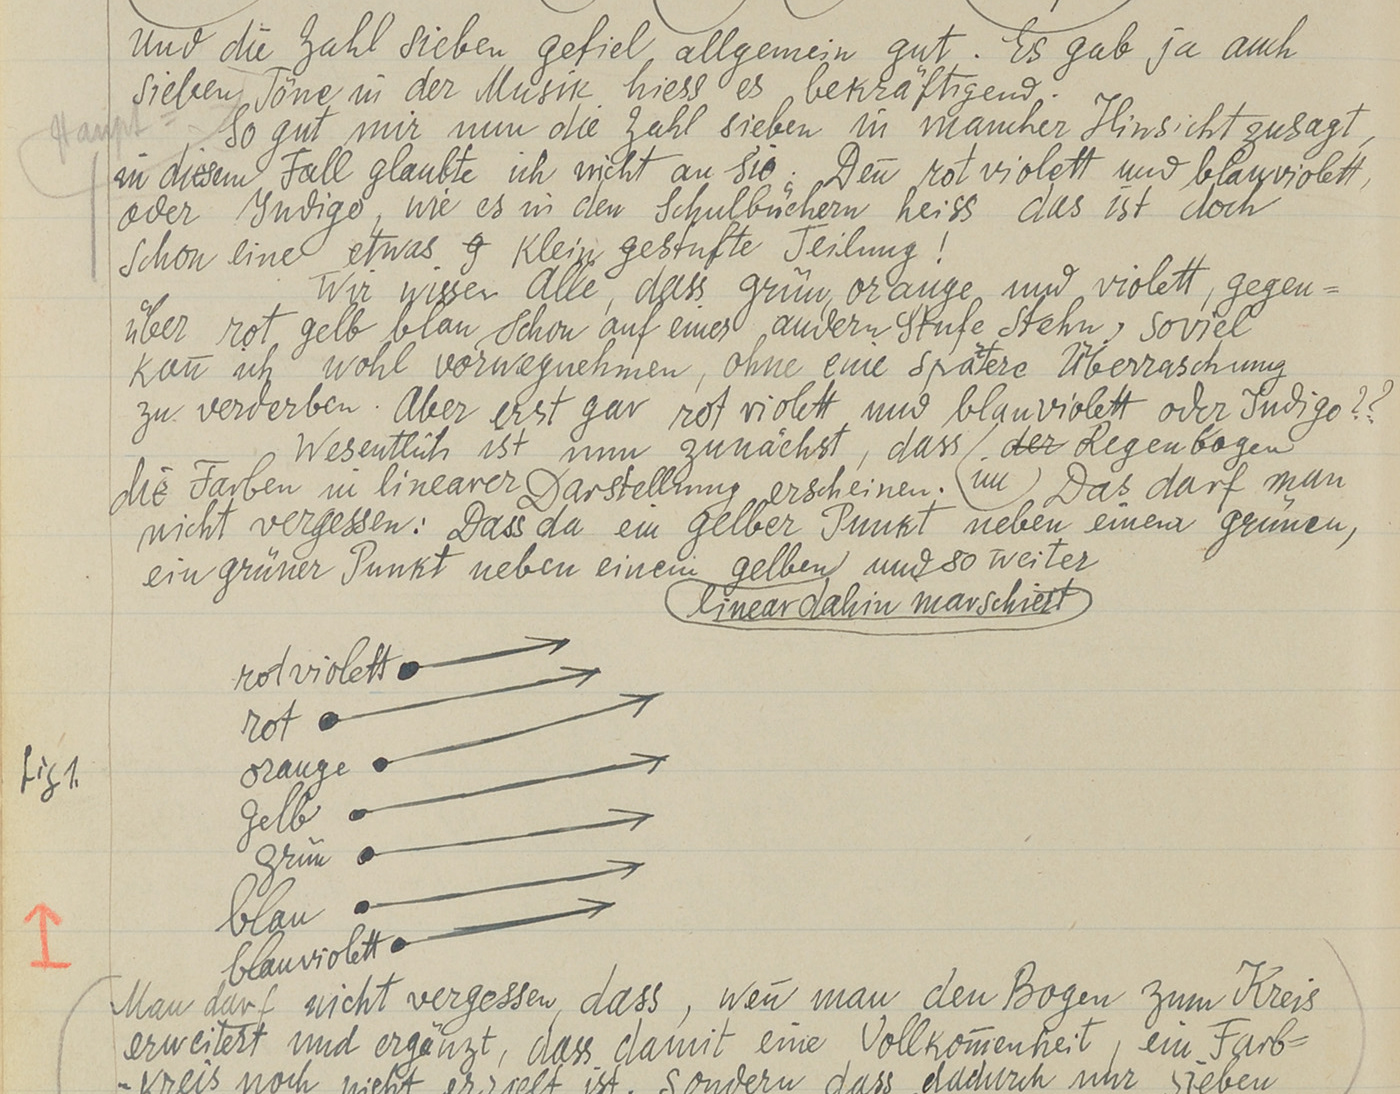 Und die Zahl sieben gefiel allgemein gut. Es gab ja auch
sieben Töne in der Musik hiess es bekräftigend.
Haupt=
So gut mir nun die Zahl sieben in mancher Hinsicht zusagt,
in diesem Fall glaubte ich nicht an sie. Den̄ rotviolett und blauviolett,
oder Indigo, wie es in den Schulbüchern heiss das ist doch
schon eine etwas g klein gestufte Teilung!
Wir wissen Alle, dass grün, orange und violett, gegen=
über rot gelb blau schon auf einer andern Stufe stehn, soviel
kan̄ ich wohl vorwegnehmen, ohne eine spätere Überraschung
zu verderben. Aber erst gar rotviolett und blauviolett oder Indigo??
Wesentlich ist nun zunächst, dass der Regenbogen
die Farben in linearer Darstellung erscheinen. (im) Das darf man
nicht vergessen: Dass da ein gelber Punkt neben einem grünen,
ein grüner Punkt neben einem gelben und so weiter
linear dahin marschiert
rotviolett
rot
orange
Fig 1.
gelb
grün
blau
blauviolett
Man darf nicht vergessen, dass, wen̄ man den Bogen zum Kreis
erweitert und ergänzt, dass damit eine Vollkom̄enheit, ein Farb=
-kreis noch nicht erzielt ist. Sondern dass dadurch nur sieben